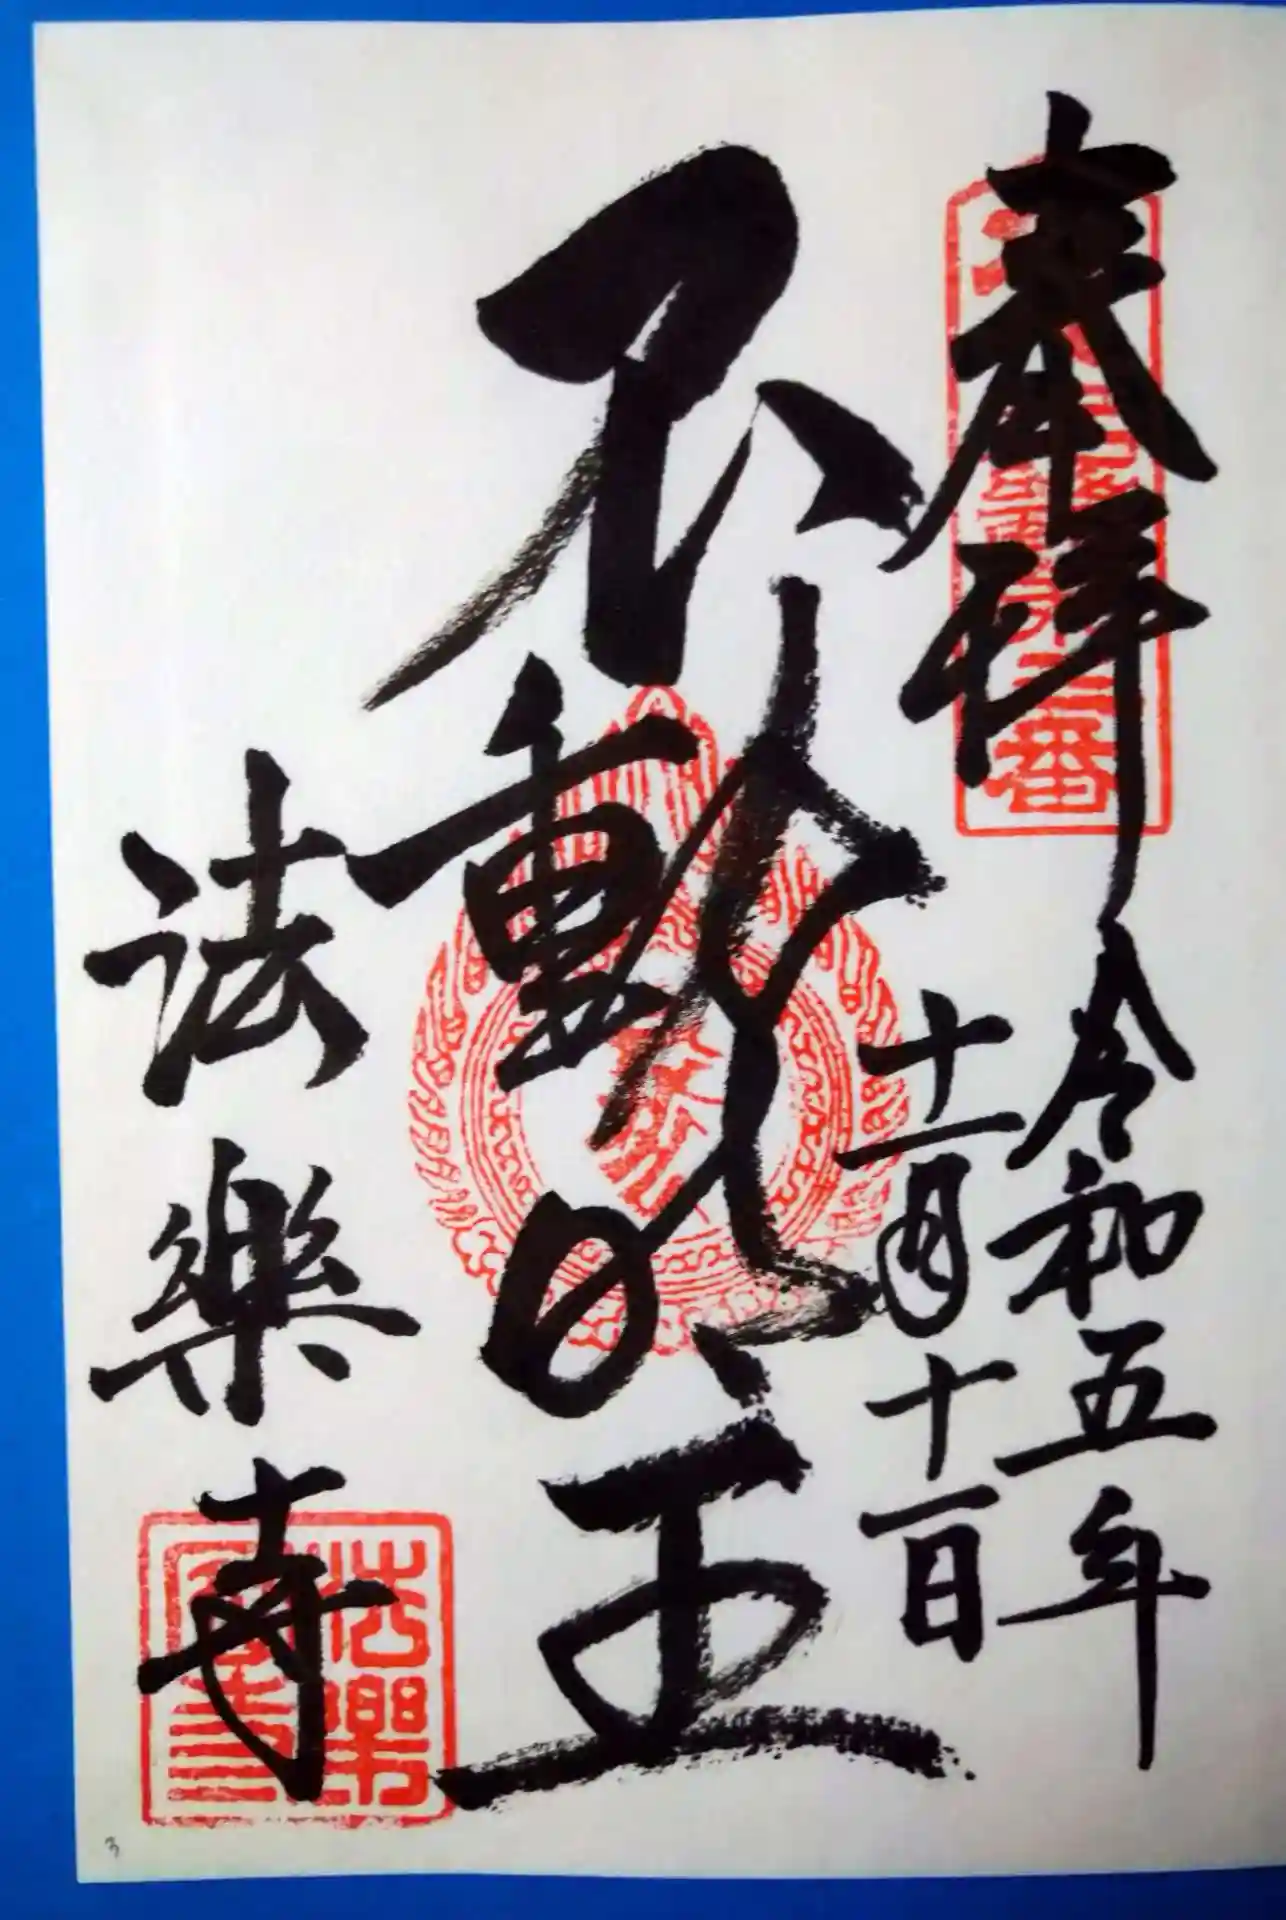 奉拝
令和五年
十一月十一日
不動明王
法樂寺
三番
法樂
3